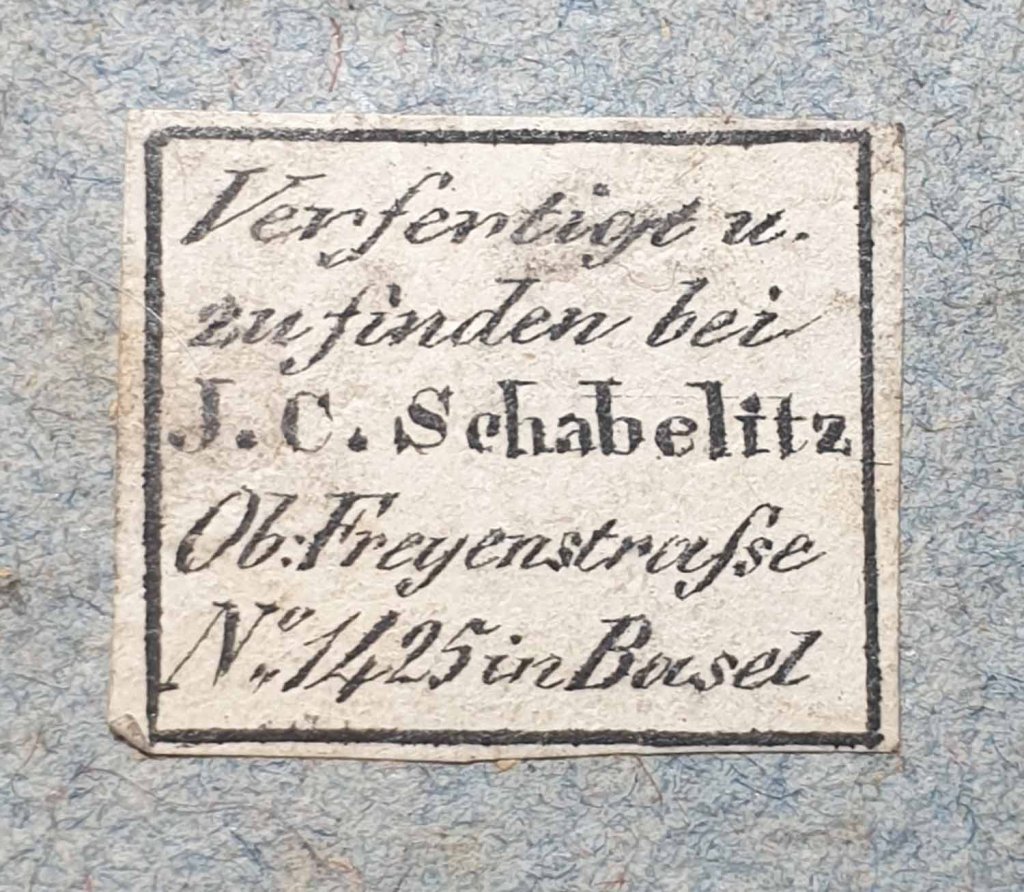 Verfertigt u.
zu finden bei
J. C. Schabelitz
Ob: Freyenstraſse
No. 1425 in Basel